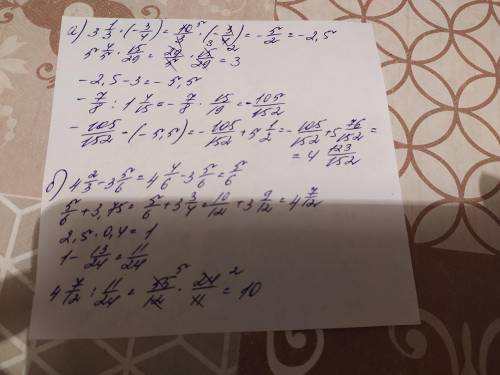 а) 3 1/3 · (-3/4) = 10/3 · (-3/4) = -5/2 = -2,5
5 4/5 · 15/29 = 29/5 · 15/29 = 3
-2,5-3=-5,5
-7/8 : 1 4/15 = -7/8 · 15/19 = -105/152
-105/152 - (-5,5) = -105/152 + 5 1/2 = -105/152 + 5 76/152 =
= 4 123/152
б) 4 2/3 - 3 5/6 = 4 4/6 - 3 5/6 = 5/6
5/6 + 3,75 = 5/6 + 3 3/4 = 10/12 + 3 9/12 = 4 7/12
2,5 · 0,4 = 1
1 - 13/24 = 11/24
4 7/12 : 11/24 = 55/12 · 24/11 = 10